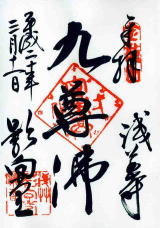 奉拝
浅草
九尊佛
平成二十年
三月十二日
影向堂